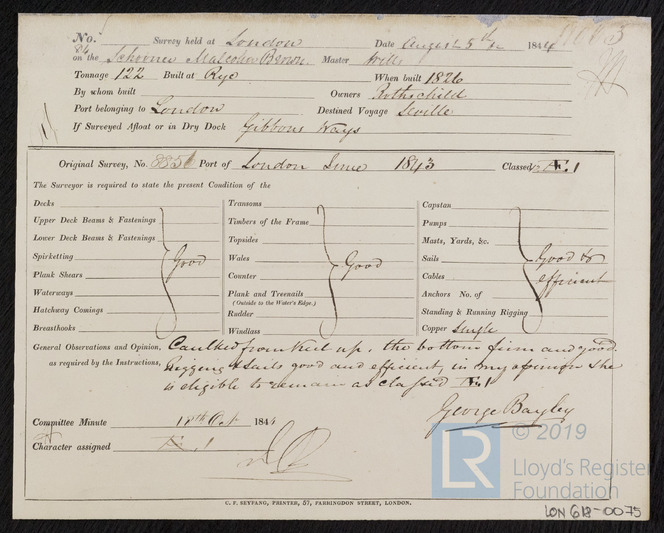 No. Survey held at London Date August 5th 1844
84 on the Schooner Malcolm Brown Master Wills
Tonnage 122 Built at Rye When built 1826
By whom built Owners Rothschild
Port belonging to London Destined Voyage Seville
If Surveyed Afloat or in Dry Dock Gibbons Ways
Original Survey, No. 8856 Port of London June 1843 Classed Æ.1
The Surveyor is required to state the present Condition of the
Decks Transoms Capstan
Upper Deck Beams & Fastenings Timbers of the Frame Pumps
Lower Deck Beams & Fastenings Topsides Masts, Yards, &c.
Spirketting Good Wales Good Sails Good &
Plank Shears Counter Cables efficient
Waterways Plank and Treenails Anchors No. of
(Outside to the Water's Edge.)
Hatchway Comings Rudder Standing & Running Rigging
Breasthooks Windlass Copper Single
General Observations and Opinion, Caulked from Keel up, the bottom firm and good.
as required by the Instructions, Rigging & sails good and efficient, in my opinion She
is eligible to remain as classed Æ.1
George Bayley
Committee Minute 18th Oct 1844
Character assigned Æ.1
© 2019
LR
Lloyd's Register
Foundation
C. F. SEYFANG, PRINTER, 57, FARRINGDON STREET, LONDON.
LON 618-0075